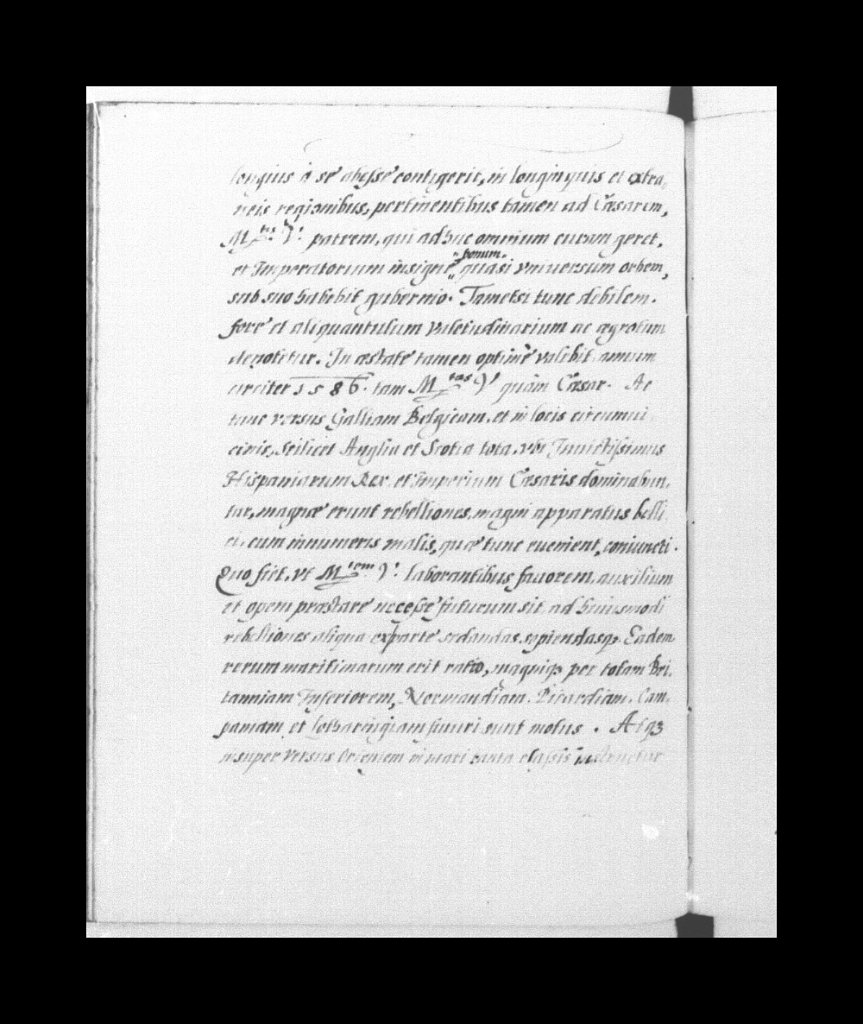 longius à se abesse contigerit, in longinquis et extra,
neis regionibus, pertinentibus tamen ad Cæsarem,
M.tis V. patrem, qui adhuc omnium curam geret,
et Imperatorium insigne, quasi vniuersum orbem,
bonum
sub suo habebit gubernio. Tametsi tunc debilem.
fore et aliquantulum valetudinarium ac ægrotum
denotetur. In æstate tamen optimè valebit, annum
circiter 1586. tam M.tas V quàm Cæsar. Ac
tunc versus Galliam Belgicam, et in locis circumui
cinis, scilicet Anglia et Scotia tota, vbi Inuictissimus
Hispaniarum Rex, et Imperium Cæsaris dominabun,
tur, magnæ erunt rebelliones, magni apparatus belli
et cum innumeris malis, quæ tunc euenient, coniuncti.
Quo fiet, vt M.tem V. laborantibus fauorem, auxilium
et opem præstare necesse futurum sit ad huiusmodi
rebelliones aliqua ex parte sedandas, sopiendasq3. Eadem
rerum maritimarum erit ratio, magniq3 per totam Bri,
tanniam Inferiorem, Normandiam, Picardiam, Cam,
paniam et Lotharingiam futuri sunt motus. Atq3
insuper versus in mari tanta classis instruetur